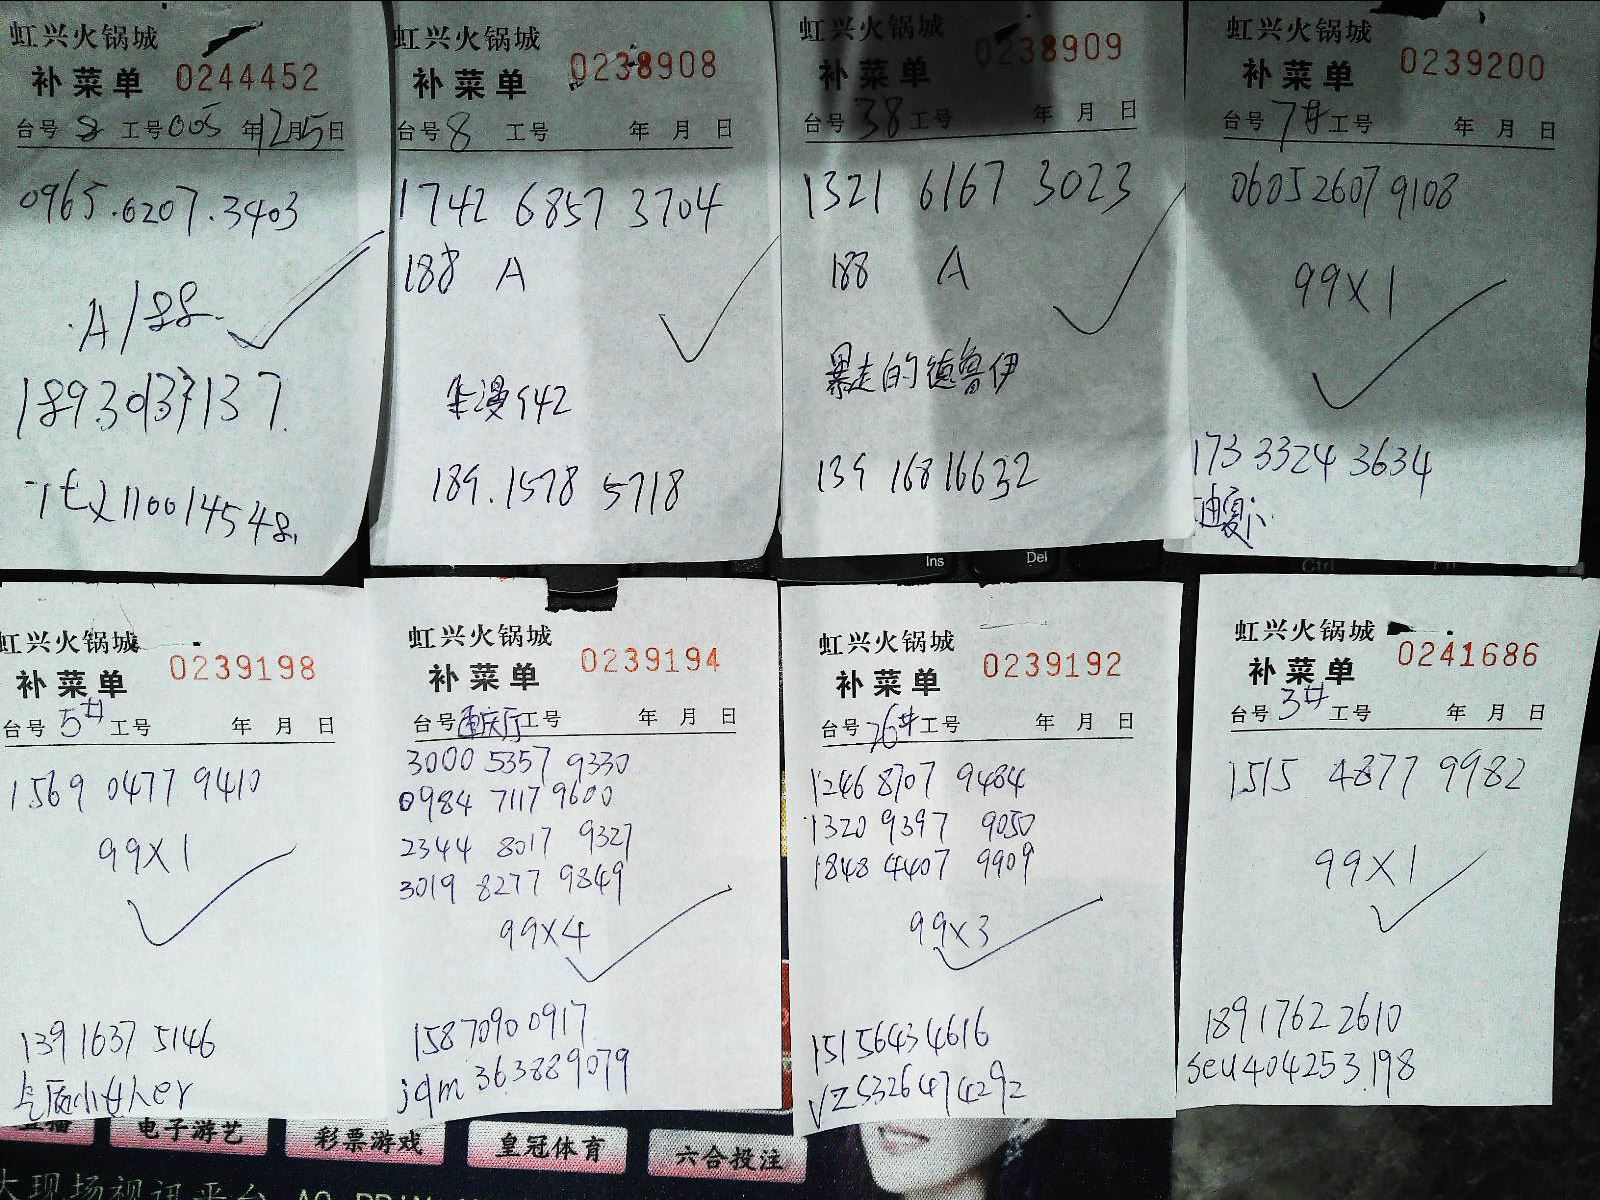 虹兴火锅城
补菜单 0244452
台号 8 工号 005 年 12月5日
0965.6207.3403
A/88.
7137.
虹兴火锅城
补菜单 0238908
台号 8 工号 年 月 日
1742 6857 3704
188 A
漫942
189.1578 5718
虹兴火锅城
补菜单 0238909
台号 38 工号 年 月 日
1321 6167 3023
188 A
暴走的德鲁伊
139 16816632
虹兴火锅城
补菜单 0239200
台号 7# 工号 年 月 日
0605 2607 9108
99X1
173 3324 3634
虹兴火锅城
补菜单 0239198
台号 5# 工号 年 月 日
1569 0477 9410
99X1
139 1637 5146
气质小女人er
虹兴火锅城
补菜单 0239194
台号 重庆厅 工号 年 月 日
3000 5357 9330
0984 7117 9600
2344 8017 9327
3019 8277 9849
99X4
158 7090 0917
jqm363889079
虹兴火锅城
补菜单 0239192
台号 26# 工号 年 月 日
1246 8707 9484
1320 9397 9050
1848 4407 9909
99X3
151 5643 4616
虹兴火锅城
补菜单 0241686
台号 3# 工号 年 月 日
1515 4877 9982
99X1
189 1762 2610
seu404253198
Ins
Del
电子游艺
彩票游戏
皇冠体育
六合投注
现场视讯平台